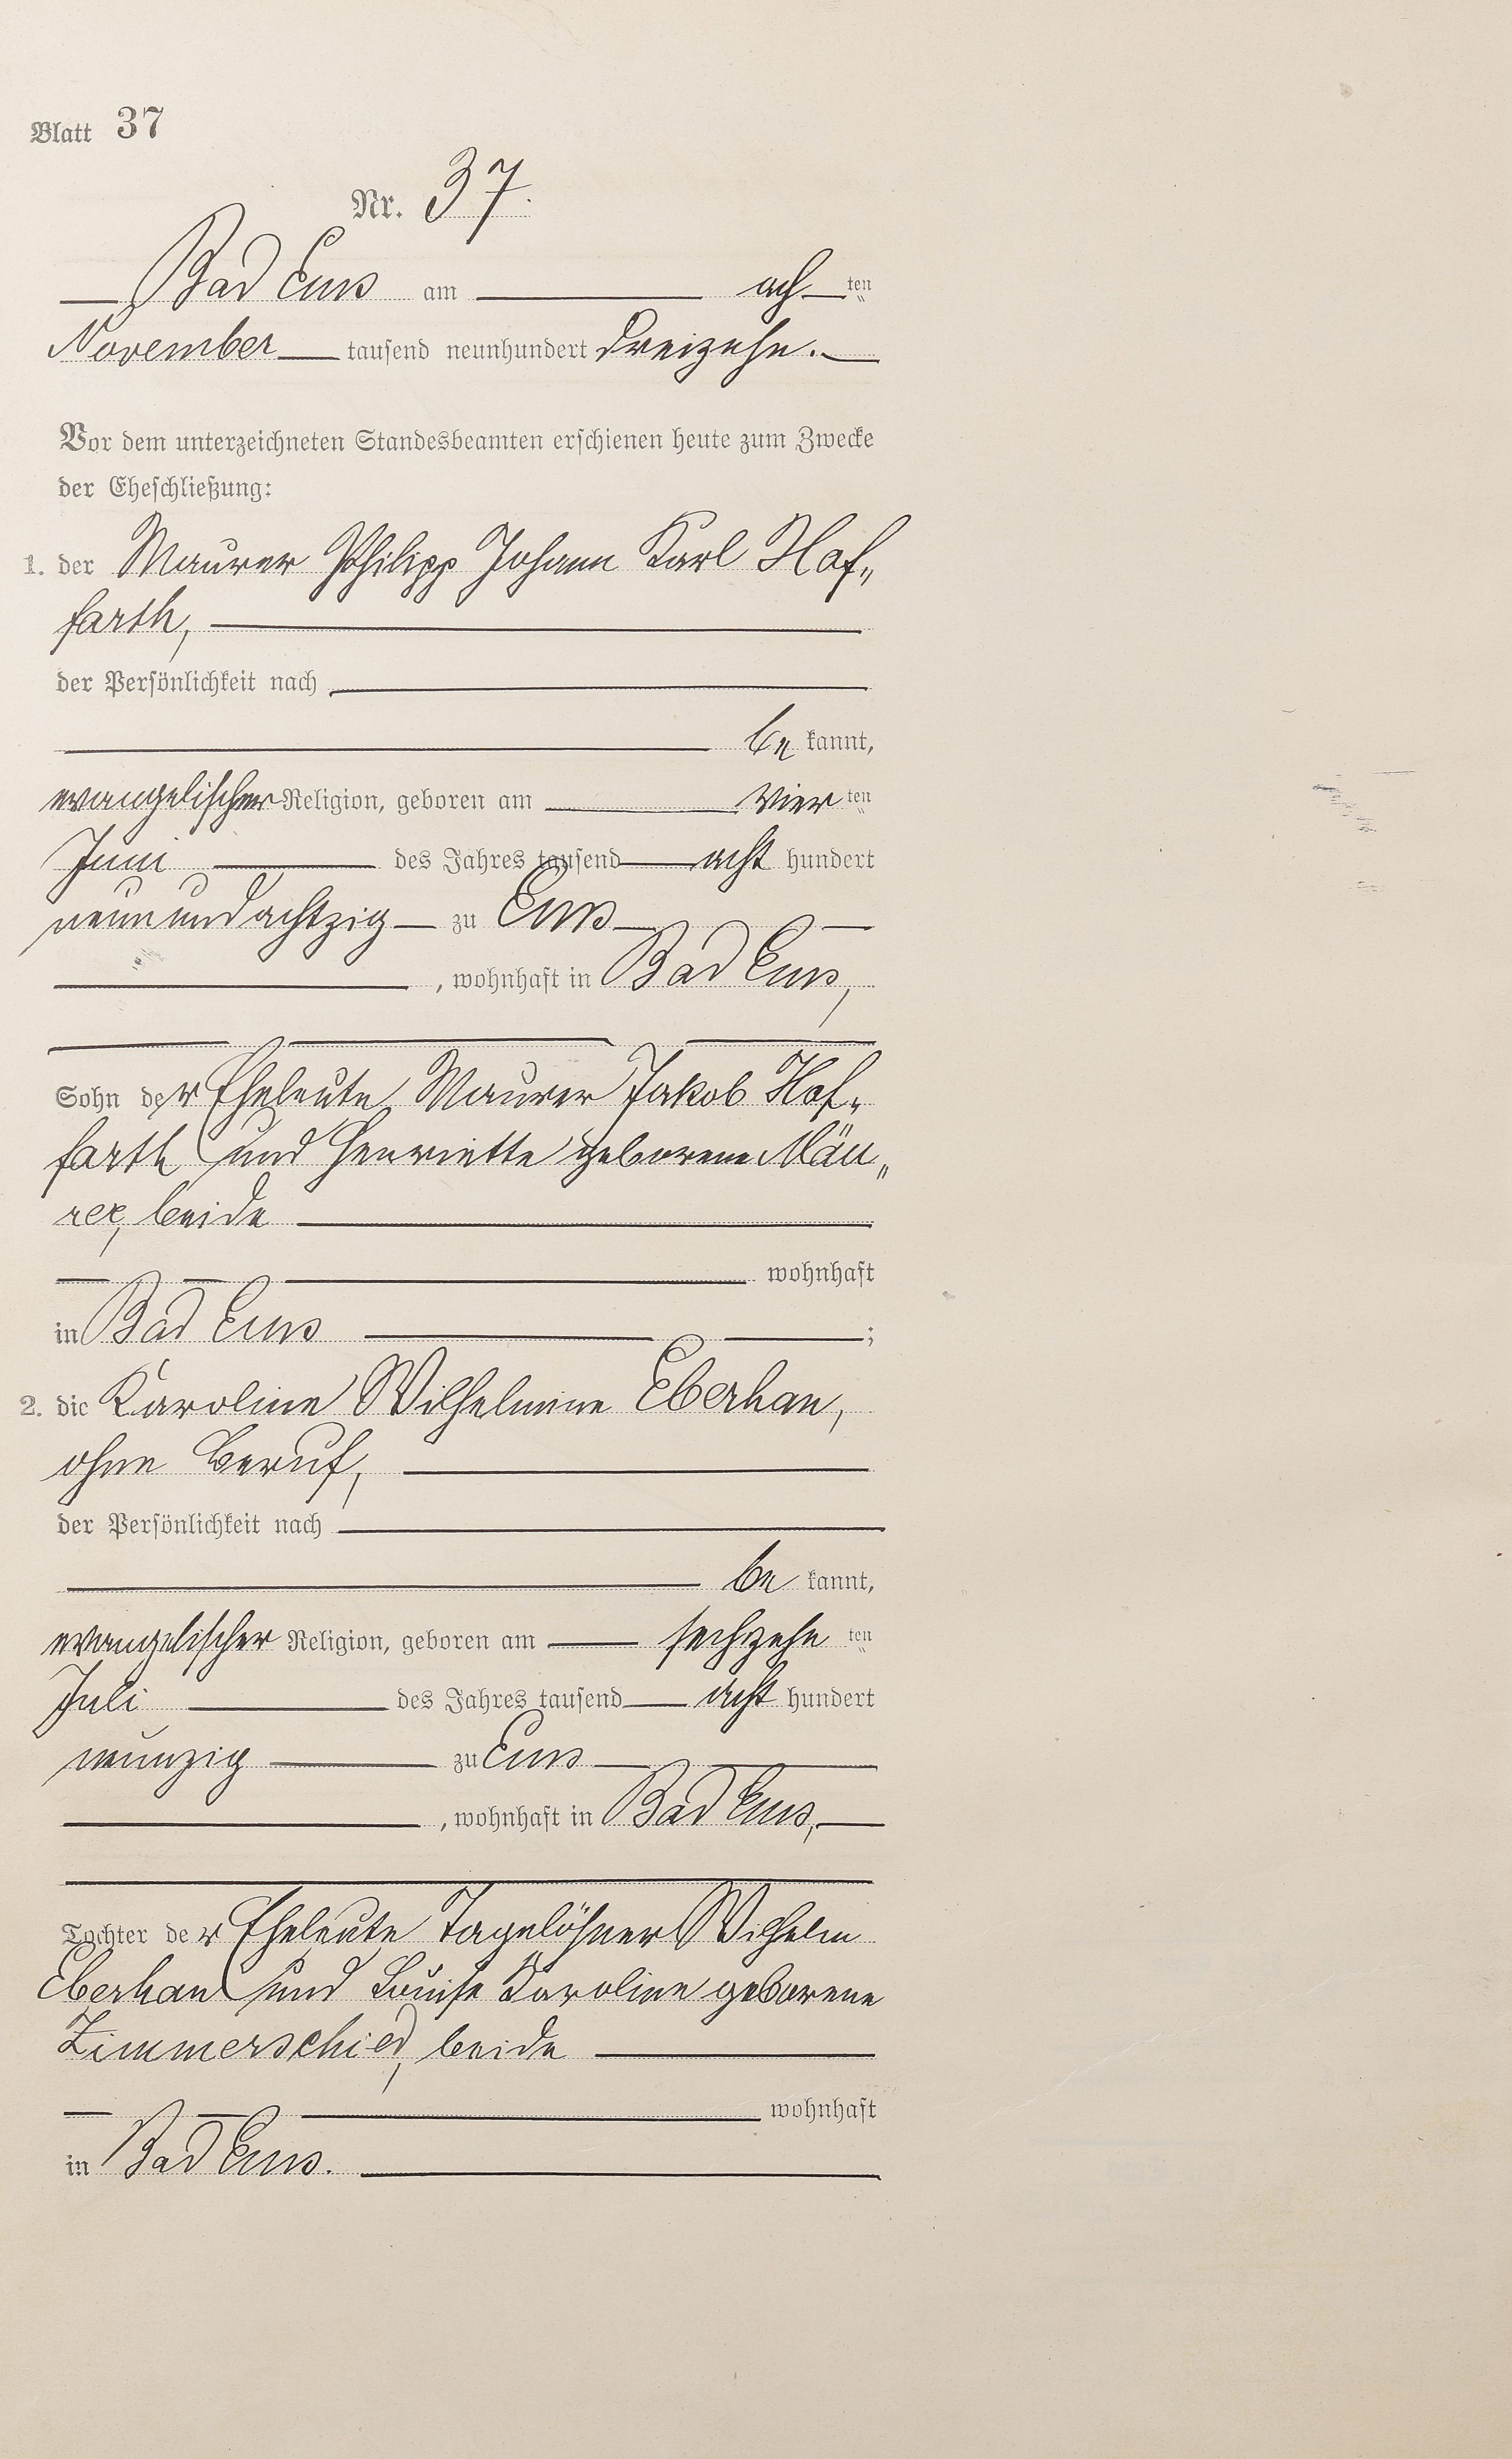 Blatt 37
Nr. 37.
Bad Ems am ach ten
November tausend neunhundert dreizehn.
Vor dem unterzeichneten Standesbeamten erschienen heute zum Zwecke
der Eheschließung:
1. der Maurer Philipp Johann Karl Hof„
farth,
der Persönlichkeit nach
be kannt,
evangelischer Religion, geboren am vier ten
Juni des Jahres tausend acht hundert
neunundachtzig zu Ems
, wohnhaft in Bad Ems,
Sohn der Eheleute Maurer Jakob Hof„
farth und Henriette geborene Mäu„
rer, beide
wohnhaft
in Bad Ems ;
2. die Karoline Wilhelmine Eberhan,
ohne Beruf,
der Persönlichkeit nach
be kannt,
evangelischer Religion, geboren am sechzehn ten
Juli des Jahres tausend acht hundert
neunzig zu Ems
, wohnhaft in Bad Ems,
Tochter der Eheleute Tagelöhner Wilhelm
Eberhan und Louise Karoline geborene
Zimmerschied, beide
wohnhaft
in Bad Ems.